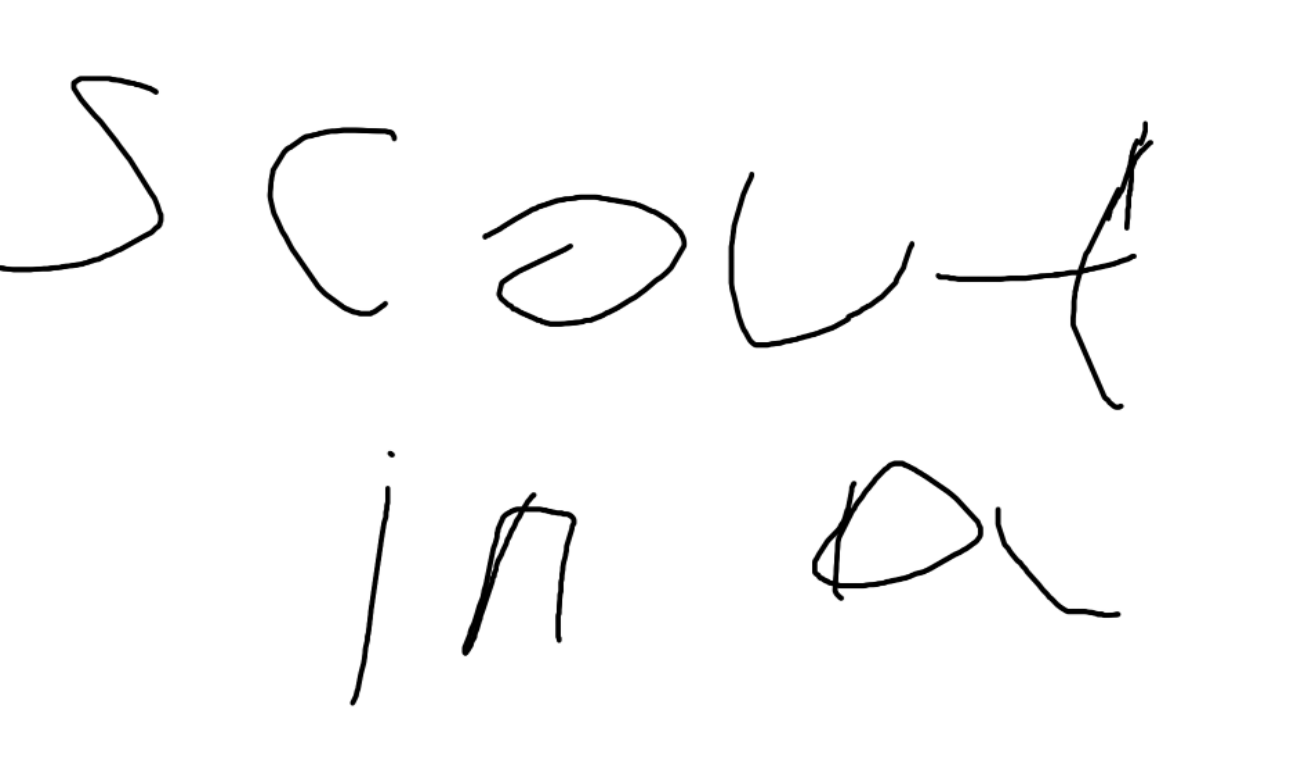 scout
in a